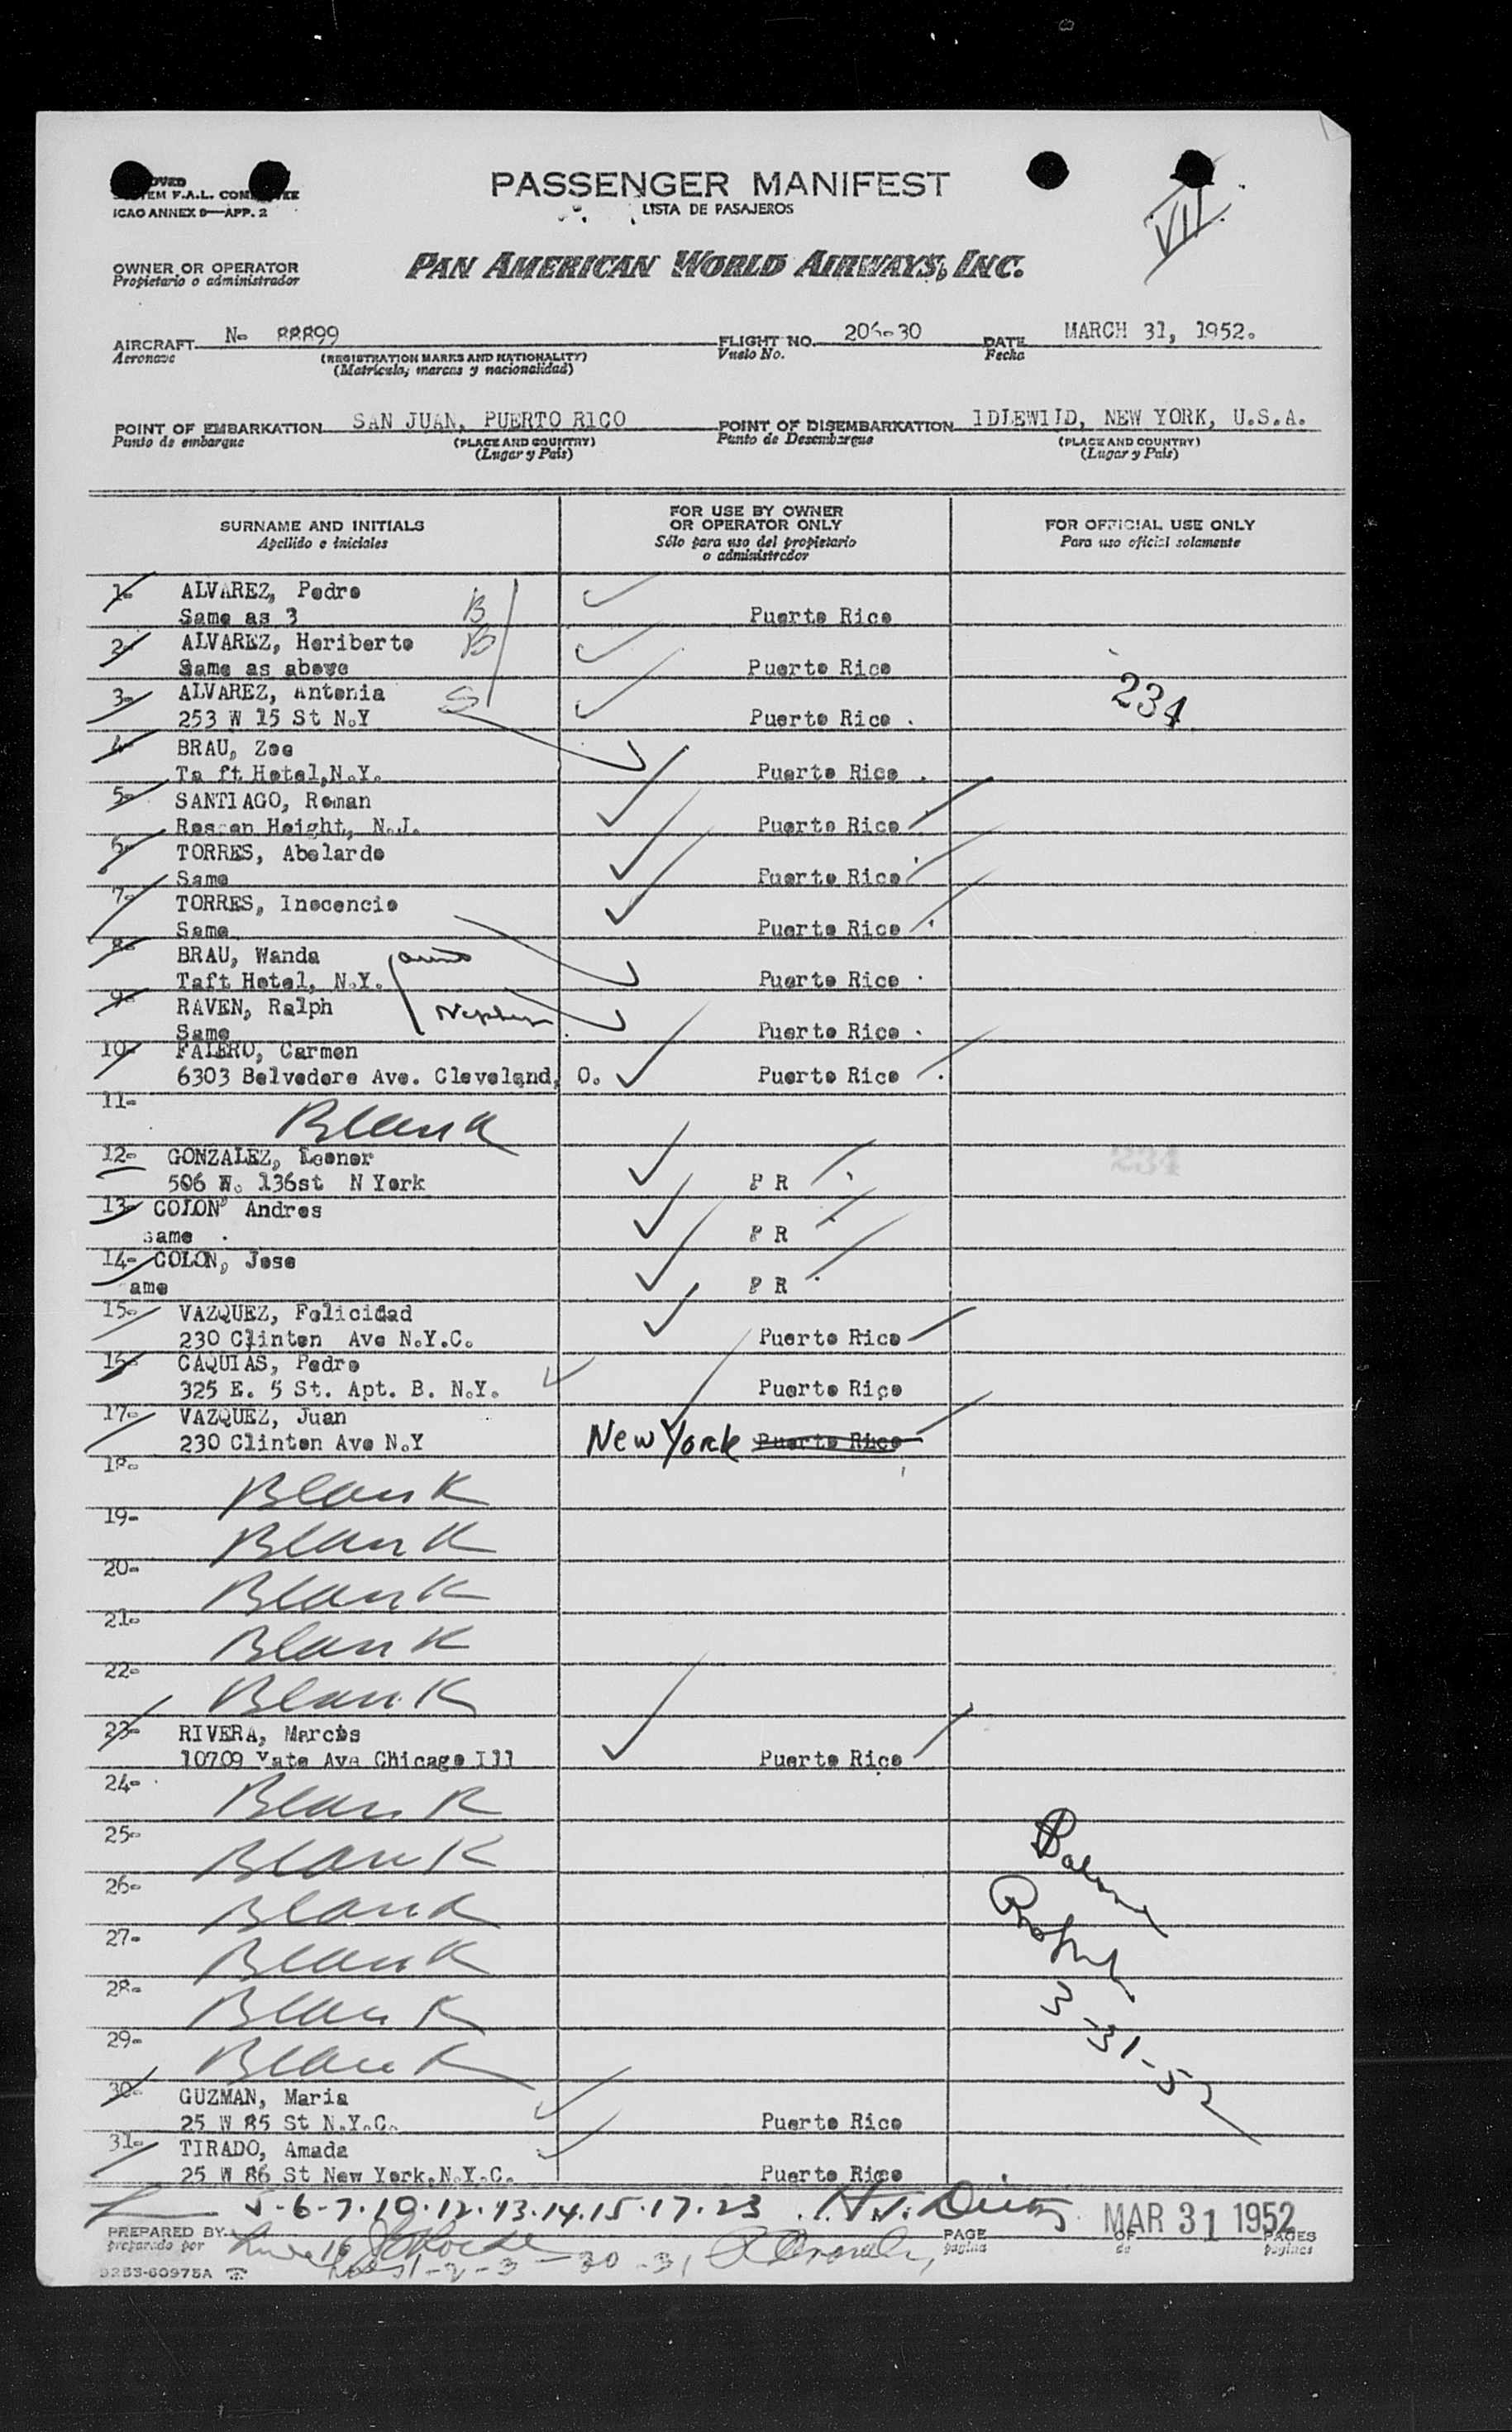 PASSENGER MANIFEST
LISTA DE PASAJEROS
VII
F.A.L.
ICAO ANNEX 9—APP. 2
OWNER OR OPERATOR
Propietario o administrador
PAN AMERICAN WORLD AIRWAYS, INC.
AIRCRAFT N- 88899 FLIGHT NO. 206-30 DATE MARCH 31, 1952.
Aeronave (REGISTRATION MARKS AND NATIONALITY) Vuelo No. Fecha
(Matricula, marcas y nacionalidad)
POINT OF EMBARKATION SAN JUAN, PUERTO RICO POINT OF DISEMBARKATION IDLEWILD, NEW YORK, U.S.A.
Punto de embarque (PLACE AND COUNTRY) Punto de Desembarque (PLACE AND COUNTRY)
(Lugar y País) (Lugar y País)
SURNAME AND INITIALS
Apellido e iniciales
FOR USE BY OWNER
OR OPERATOR ONLY
Sólo para uso del propietario
o administrador
FOR OFFICIAL USE ONLY
Para uso oficial solamente
1- ALVAREZ, Pedro B
Same as 3 Puerto Rico
2- ALVAREZ, Heriberto B
Same as above Puerto Rico
3- ALVAREZ, Antonia S 234
253 W 15 St N.Y Puerto Rico .
4- BRAU, Zoe
Ta ft Hotel,N.Y. Puerto Rico .
5- SANTIAGO, Roman
Height, N.J. Puerto Rico
6- TORRES, Abelardo
Same Puerto Rico
7- TORRES, Inocencio
Same Puerto Rico
8- BRAU, Wanda aunt
Taft Hotel, N.Y. Puerto Rico .
9- RAVEN, Ralph Nephew
Same Puerto Rico .
10- FALERO, Carmen
6303 Belvedere Ave. Cleveland, O. Puerto Rico .
11- Blank
12- GONZALEZ, Leonor 234
506 W. 136st N York P R
13- COLON Andres
same . P R
14- COLON, Jose
ame P R
15- VAZQUEZ, Felicidad
230 Clinton Ave N.Y.C. Puerto Rico
16- CAQUIAS, Pedro
325 E. 5 St. Apt. B. N.Y. Puerto Rico
17- VAZQUEZ, Juan
230 Clinton Ave N.Y New York Puerto Rico
18- Blank
19- Blank
20- Blank
21- Blank
22- Blank
23- RIVERA, Marcos
10709 Yate Ave Chicago Ill Puerto Rico
24- Blank
25- Blank
26- Blank
27- Blank
28- Blank
29- Blank
3-31-52
30- GUZMAN, Maria
25 W 85 St N.Y.C. Puerto Rico
31- TIRADO, Amada
25 W 86 St New York,N.Y.C. Puerto Rico
5-6-7-10-12-13-14-15-17-23 MAR 31 1952
PREPARED BY PAGE OF PAGES
preparado por página de páginas
16
1-2-3-30-31
9253-60975A